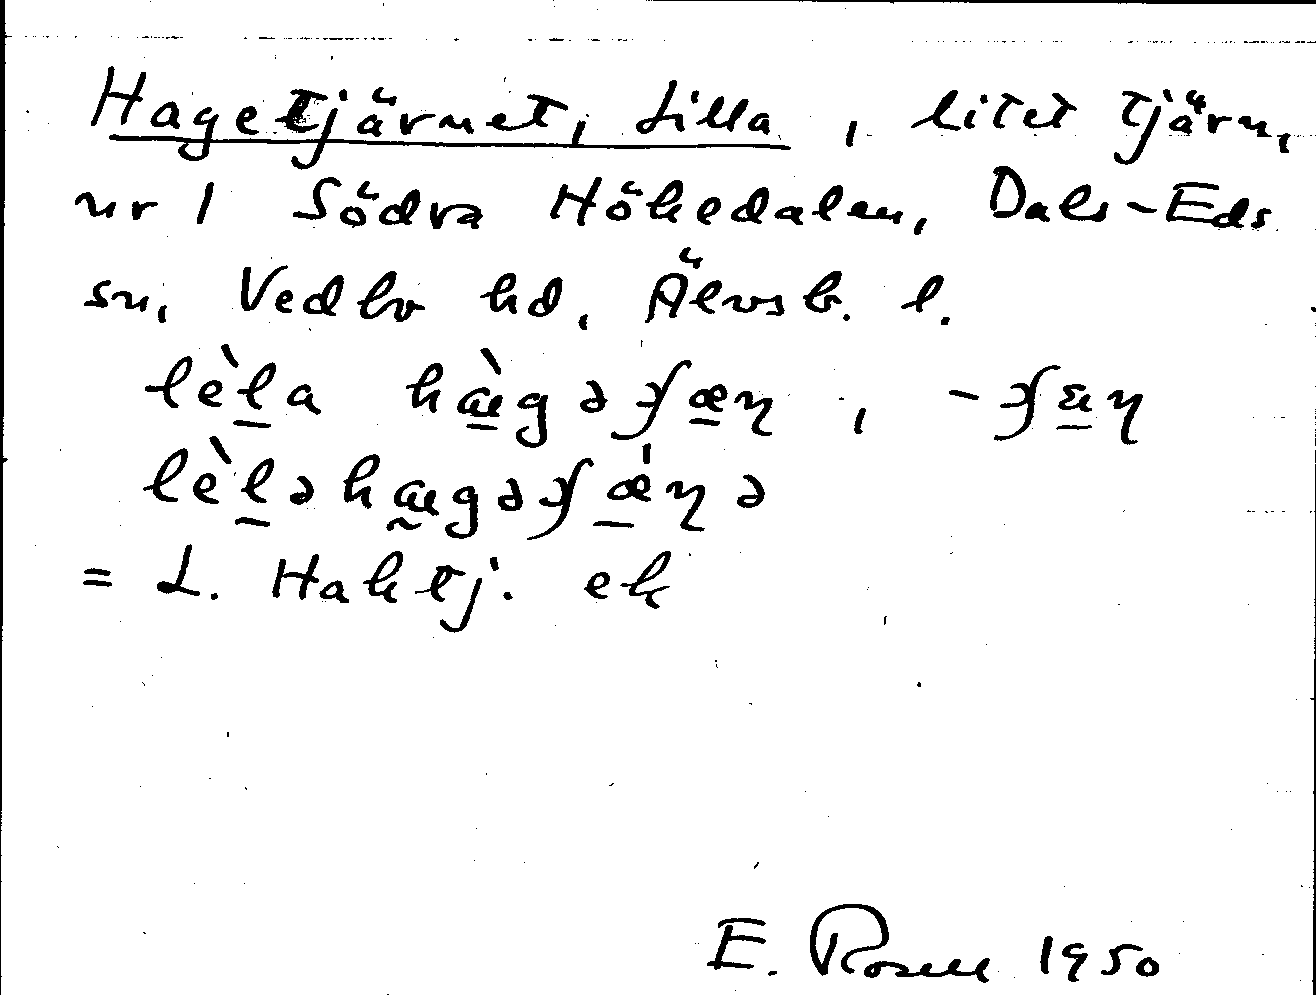 Hagetjärnet, Lilla, litet tjärn,
nr 1 Södra Hökedalen, Dals-Eds
sn, Vedbo hd, Älvsb. l.
lèla hàgəʃæɳ, -ʃæɳ
lèləhagəʃǽɳə
= L. Haktj. ek
E. Rosell 1950